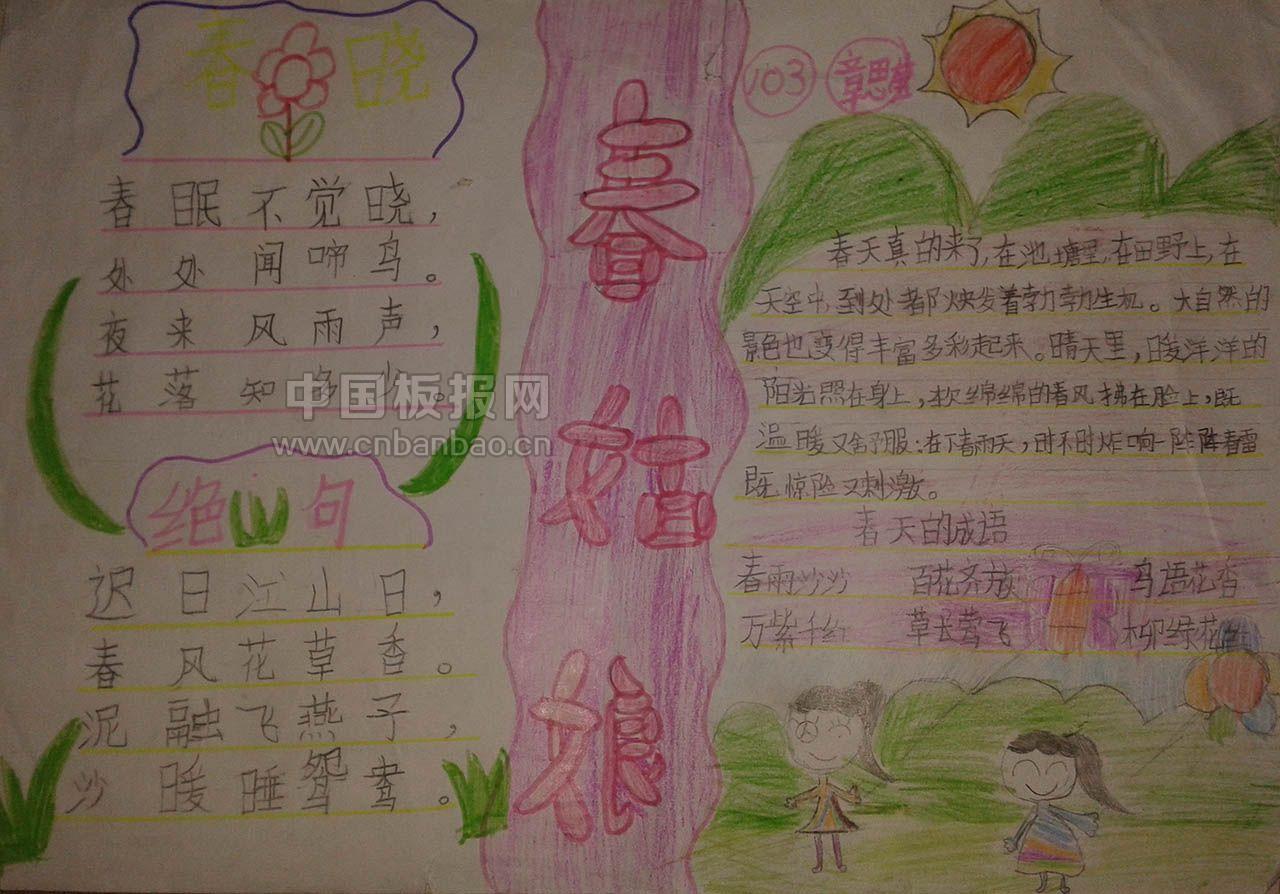 春晓
春眠不觉晓，
处处闻啼鸟。
夜来风雨声，
花落知多少。
绝句
迟日江山日，
春风花草香。
泥融飞燕子，
沙暖睡鸳鸯。
春姑娘
103 章思
春天真的来了，在池塘里，在田野上，在
天空中，到处都焕发着勃勃生机。大自然的
景色也变得丰富多彩起来。晴天里，暖洋洋的
阳光照在身上，软绵绵的春风拂在脸上，既
温暖又舒服；在下春雨天，时不时炸响一阵阵春雷
既惊险又刺激。
春天的成语
春雨沙沙 百花齐放 鸟语花香
万紫千红 草长莺飞 柳绿花
中国板报网
www.cnbanbao.cn